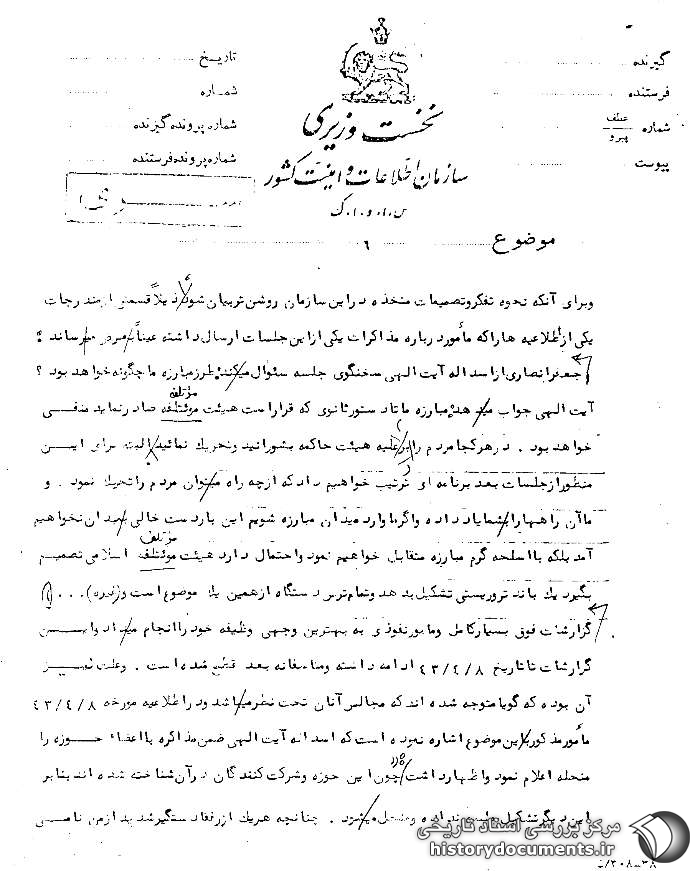 گیرنده
فرستنده
شماره عطف پیرو
پیوست
نخست وزیری
سازمان اطلاعات و امنیت کشور
س.ا.و.ا.ک
تاریخ
شماره
شماره پرونده گیرنده
شماره پرونده فرستنده
موضوع ٦
وبرای آنکه نحوه تفکر و تصمیمات متخذه در این سازمان روشن تر بیان شود ذیلاً قسمتی از مندرجات
یکی از اطلاعیه ها را که مأمور درباره مذاکرات یکی از این جلسات ارسال داشته عیناً بعرض میرساند :
(جعفر انصاری از اسداله آیت الهی سخنگوی جلسه سئوال میکند : طرز مبارزه ما چگونه خواهد بود ؟
آیت الهی جواب میدهد : مبارزه ما تا دستور ثانوی که قرار است هیئت موئتلفه مؤتلفه صادر نماید منفی
خواهد بود . در هر کجا مردم را بر علیه هیئت حاکمه بشورانید و تحریک نمائید البته برای ایـن
منظور از جلسات بعد برنامه ای ترتیب خواهیم داد که از چه راه میتوان مردم را تحریک نمود . و
ما آن راهها را بشما یاد داده و اگر ما وارد میدان مبارزه شویم این بار دست خالی بمیدان نخواهیم
آمد بلکه با اسلحه گرم مبارزه متقابل خواهیم نمود و احتمال دارد هیئت موئتلفه مؤتلفه اسلامی تصمیم
بگیرد یک باند تروریستی تشکیل بدهد و تمام ترس دستگاه از همین یک موضوع است و(غیره) . . .
گزارشات فوق بسیار کامل و مأمور نفوذی به بهترین وجهی وظیفه خود را انجام میداد و ایـن
گزارشات تا تاریخ ٤٣/٤/٨ ادامه داشته و متأسفانه بعد قطع شده است . وعلت نـیـز
آن بوده که گویا متوجه شده اند که مجالس آنان تحت نظر میباشد و در اطلاعیه مورخه ٤٣/٤/٨
مأمور مذکور باین موضوع اشاره نموده است که اسداله آیت الهی ضمن مذاکره با اعضاء حـوزه را
منحله اعلام نمود و اظهار داشت چون این حوزه و شرکت کنندگان در آن شناخته شده اند بنابر
این دیگر تشکیل جلسه نداده و منحل میشود . چنانچه هر یک از رفقا دستگیر شدید از من نامـی
مرکز بررسی اسناد تاریخی
historydocuments.ir